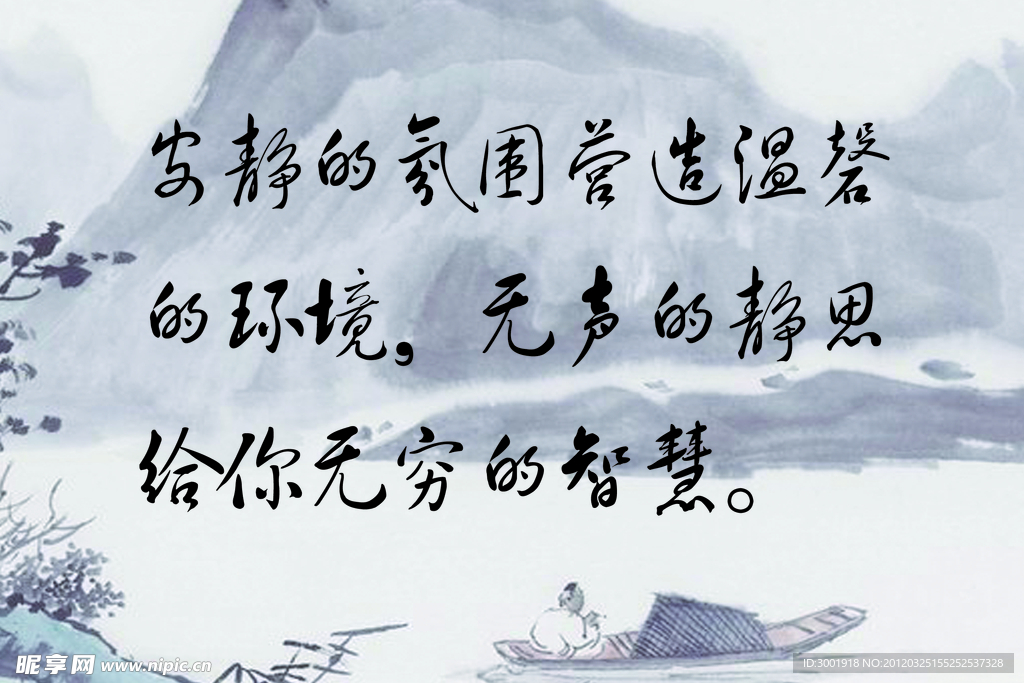 安静的氛围营造温磬
的环境，无声的静思
给你无穷的智慧。
昵享网 www.nipic.cn
ID:3001918 NO:20120325155252537328